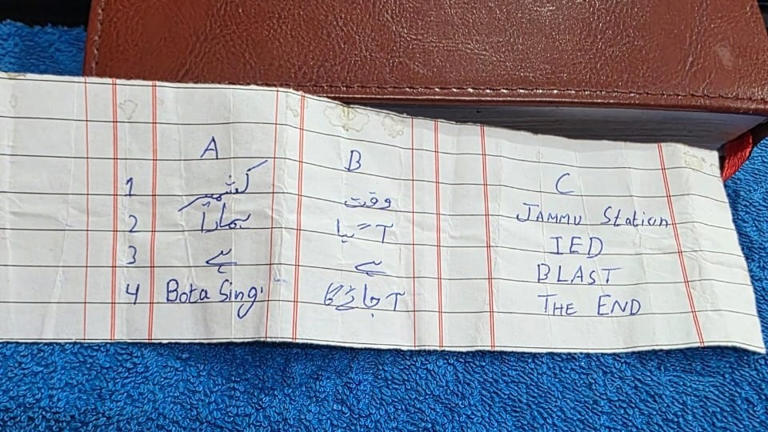 A B C
1 کشمیر وقت JAMMU Station
2 ہمارا آگیا IED
3 ہے ہے BLAST
4 Bota Sing آجائےگا THE END